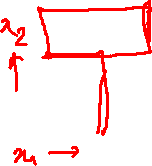 x₂ ↑
x₁ →